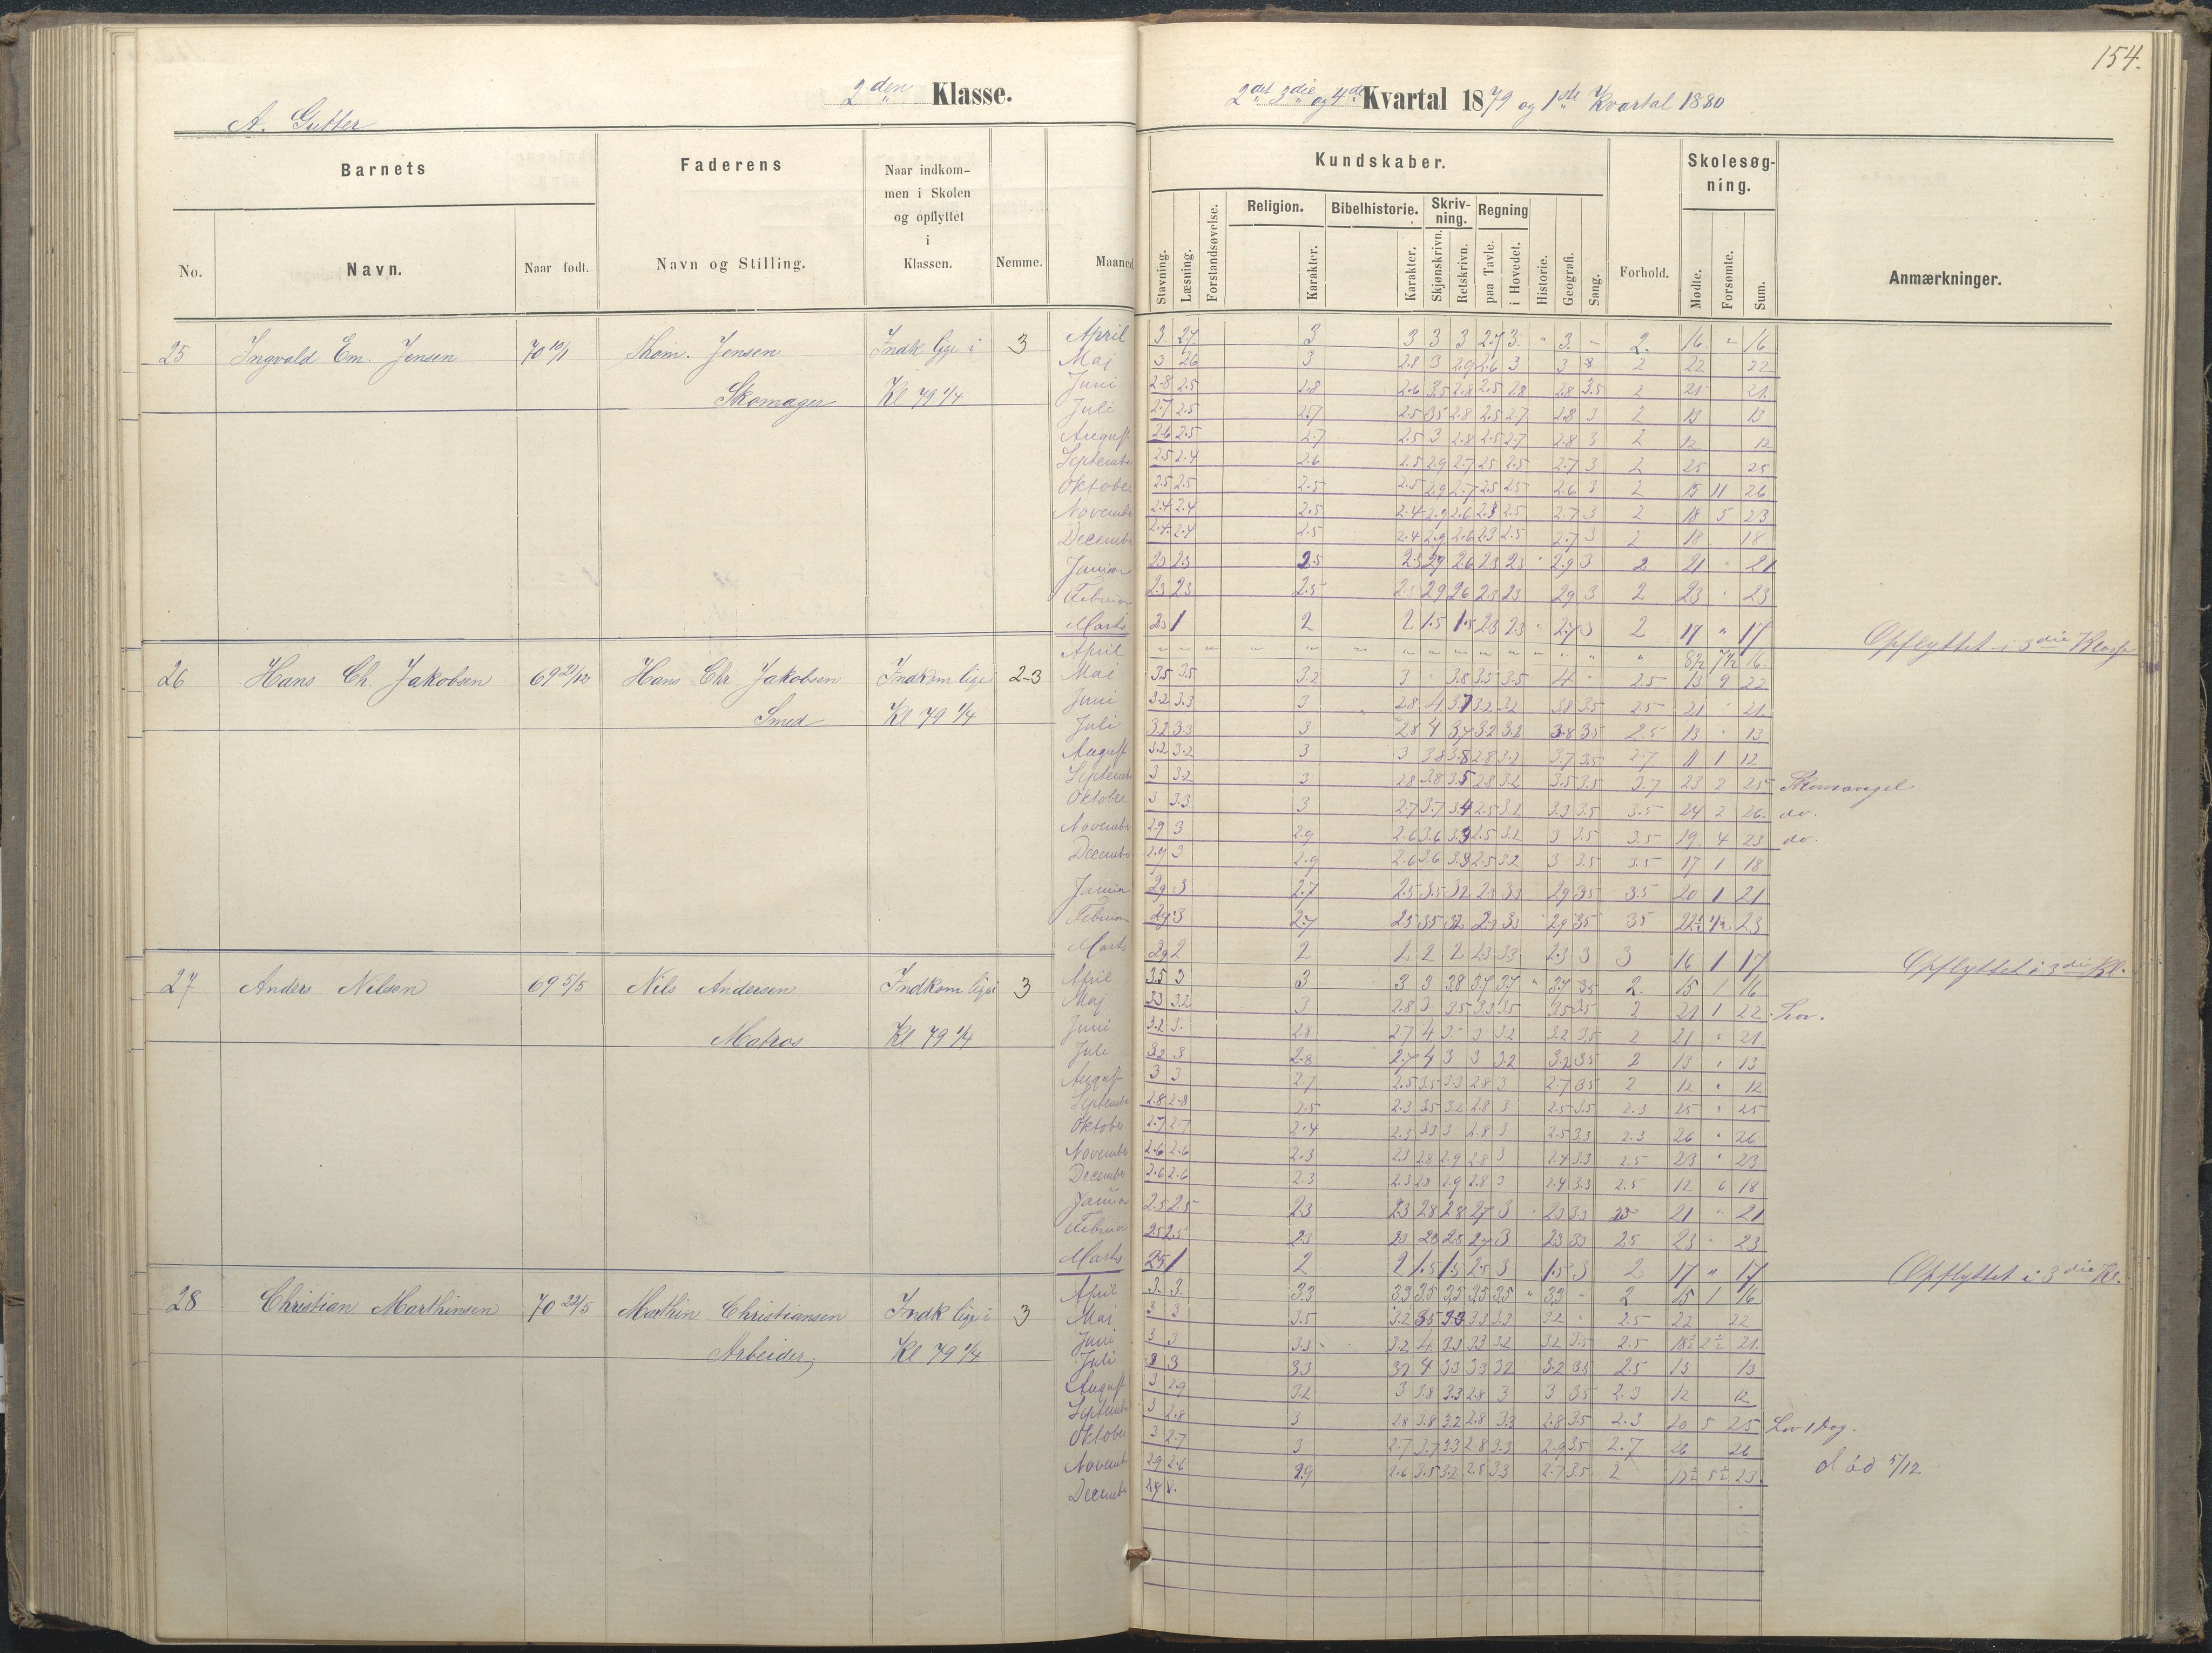 154.
2den Klasse.
2det 3die og 4de Kvartal 1879 og 1ste Kvartal 1880
A. Gutter
Barnets
Faderens
Naar indkom-
men i Skolen
og opflyttet
i
Klassen.
Kundskaber.
Skolesøg-
ning.
Religion. Bibelhistorie. Skriv-
ning. Regning
No. Navn. Naar født. Navn og Stilling. Nemme. Maaned
Stavning. Læsning. Forstandsøvelse. Karakter. Karakter. Skjønskrivn. Retskrivn. paa Tavle. i Hovedet. Historie. Geografi. Sang. Forhold. Mødte. Forsømte. Sum. Anmærkninger.
25 Ingvald Em. Jensen 70 10/1 Thom. Jensen Indk lige i 3 April 3. 2.7. 3 3 3 3 2.7 3. " 3. " 2. 16. " 16
Maj 3 26 3 2.8 3 2.9 2.6 3 3 3 2 22 22
Skomager Kl 79 1/4
Juni 2.8 2.5 2.8 2.6 3.5 2.8 2.5 2.8 2.8 3.5 2 21 21
Juli 2.7 2.5 2.7 2.5 35 2.8 2.5 2.7 2.8 3 2 13 13
August 2.6 2.5 2.7 2.5 3 2.8 2.5 2.7 2.8 3 2 12 12
Septembr 2.5 2.4 2.6 2.5 2.9 2.7 25 2.5 2.7 3 2 25 25
Oktober 2.5 2.5 2.5 2.5 2.9 2.7 25 25 2.6 3 2 15 11 26
Novembr 2.4 2.4 2.5 2.4 2.9 2.6 2.3 2.5 2.7 3 2 18 5 23
Decembr 2.4 2.4 2.5 2.4 2.9 2.6 23 2.5 2.7 3 2 18 18
Januar 23 23 25 23 29 26 23 23 " 2.9 3 2 21 " 21
Februar 23 23 2.5 23 29 26 23 23 29 3 2 23 " 23
Marts 23 1 2 2 1.5 1.5 23 23 " 2.7 3 2 17 " 17 Opflyttet i 3die Klasse
26 Hans Ch. Jakobsen 69 21/12 Hans Chr Jakobsen Indkom lige i 2-3 April 8½ 7½ 16.
Maj 3.5 3.5 3.2 3 " 3.8 3.5 3.5 4 " 2.5 13 9 22
Smed Kl 79 1/4
Juni 3.2 3.3 3 28 4 37 3.2 3.2 3.8 3.5 2.5 21 " 21
Juli 3.2 3.3 3 28 4 37 32 3.2 3.8 35 2.5 13 " 13
August 3.2 3.2 3 3 38 3.8 28 3.2 37 3.5 2.7 11 1 12
Septembr 3 3.2 3 28 3.8 35 28 32 3.5 3.5 3.7 23 2 25 Skomangel
Oktober 3 3.3 3 2.7 3.7 3.4 2.5 3.1 3.3 3.5 3.5 24 2 26. do.
Novembr 2.9 3 2.9 2.6 3.6 3.3 2.5 3.1 3 3.5 3.5 19 4 23 do.
Decembr 2.9 3 2.9 2.6 3.6 3.3 2.5 3.2 3 3.5 3.5 17 1 18
Januar 29 3 2.7 2.5 3.5 32 23 33 29 35 3.5 20 1 21
Februar 29 3 2.7 25 35 32 23 33 29 35 35 22½ ½ 23
Marts 29 2 2 2 2 2 23 33 2.3 3 3 16 1 17 Opflyttet i 3die Kl.
27 Anders Nilsen 69 5/5 Nils Andersen Indkom lige i 3 April 35 3 3 3 3 38 37 37 " 37 35 2. 15 1 16
Maj 33 3.2 3 2.8 3 3.5 3.5 35 35 35 2 21 1 22 Lov.
Matros Kl 79 1/4
Juni 3.2 3. 28 27 4 3 3 3.2 3.2 35 2 21 " 21
Juli 32 3 2.8 2.7 4 3 3 3.2 3.2 35 2 13 " 13
August 3 3 2.7 2.5 3.5 3.3 28 3 2.7 35 2 12 " 12
Septembr 2.8 2.8 2.5 2.3 35 3.2 2.8 3 2.5 3.5 2.3 25 " 25
Oktober 2.7 2.7 2.4 2.3 33 3 2.8 3 2.5 33 2.3 26 " 26
Novembr 2.6 2.6 2.3 23 28 2.9 28 3 2.4 3.3 2.5 23 " 23
Decembr 2.6 2.6 2.3 2.3 28 2.9 2.8 3 2.4 3.3 2.5 12 6 18
Januar 2.5 2.5 23 23 28 28 27 3 " 23 33 25 21 " 21
Februar 25 25 23 23 28 28 27 3 23 33 25 23 " 23
Marts 25 1 2 2 1.5 1.5 25 3 1.5 3 2 17 " 17 Opflyttet i 3die Kl.
28 Christian Marthinsen 70 22/5 Marthin Christiansen Indk lige i 3 April 3. 3. 33 33 35 35 35 35 " 33 " 2 15 1 16
Maj 3 3 3.5 3.2 35 33 33 33 32 " 2.5 22 22
Arbeider, Kl 79 1/4
Juni 3 3 3.3 3.2 4 33 33 32 3.2 3.5 2.5 18½ 2½ 21
Juli 3 3 33 32 4 33 33 32 3.2 35 2.5 13 13
August 3 2.9 32 3 3.8 3.3 2.8 3 3 35 2.3 12 12
Septembr 3 2.8 3 28 3.8 3.2 2.8 3.3 2.8 3.5 2.3 20 5 25 Lov 1 Dag.
Oktober 3 2.7 3 2.7 3.7 3.3 2.8 3.3 2.9 3.5 2.7 26 26
Novembr 29 2.6 29 2.6 3.5 3.2 2.8 33 2.7 3.5 2 17½ 5½ 23. død 5/12
Decembr